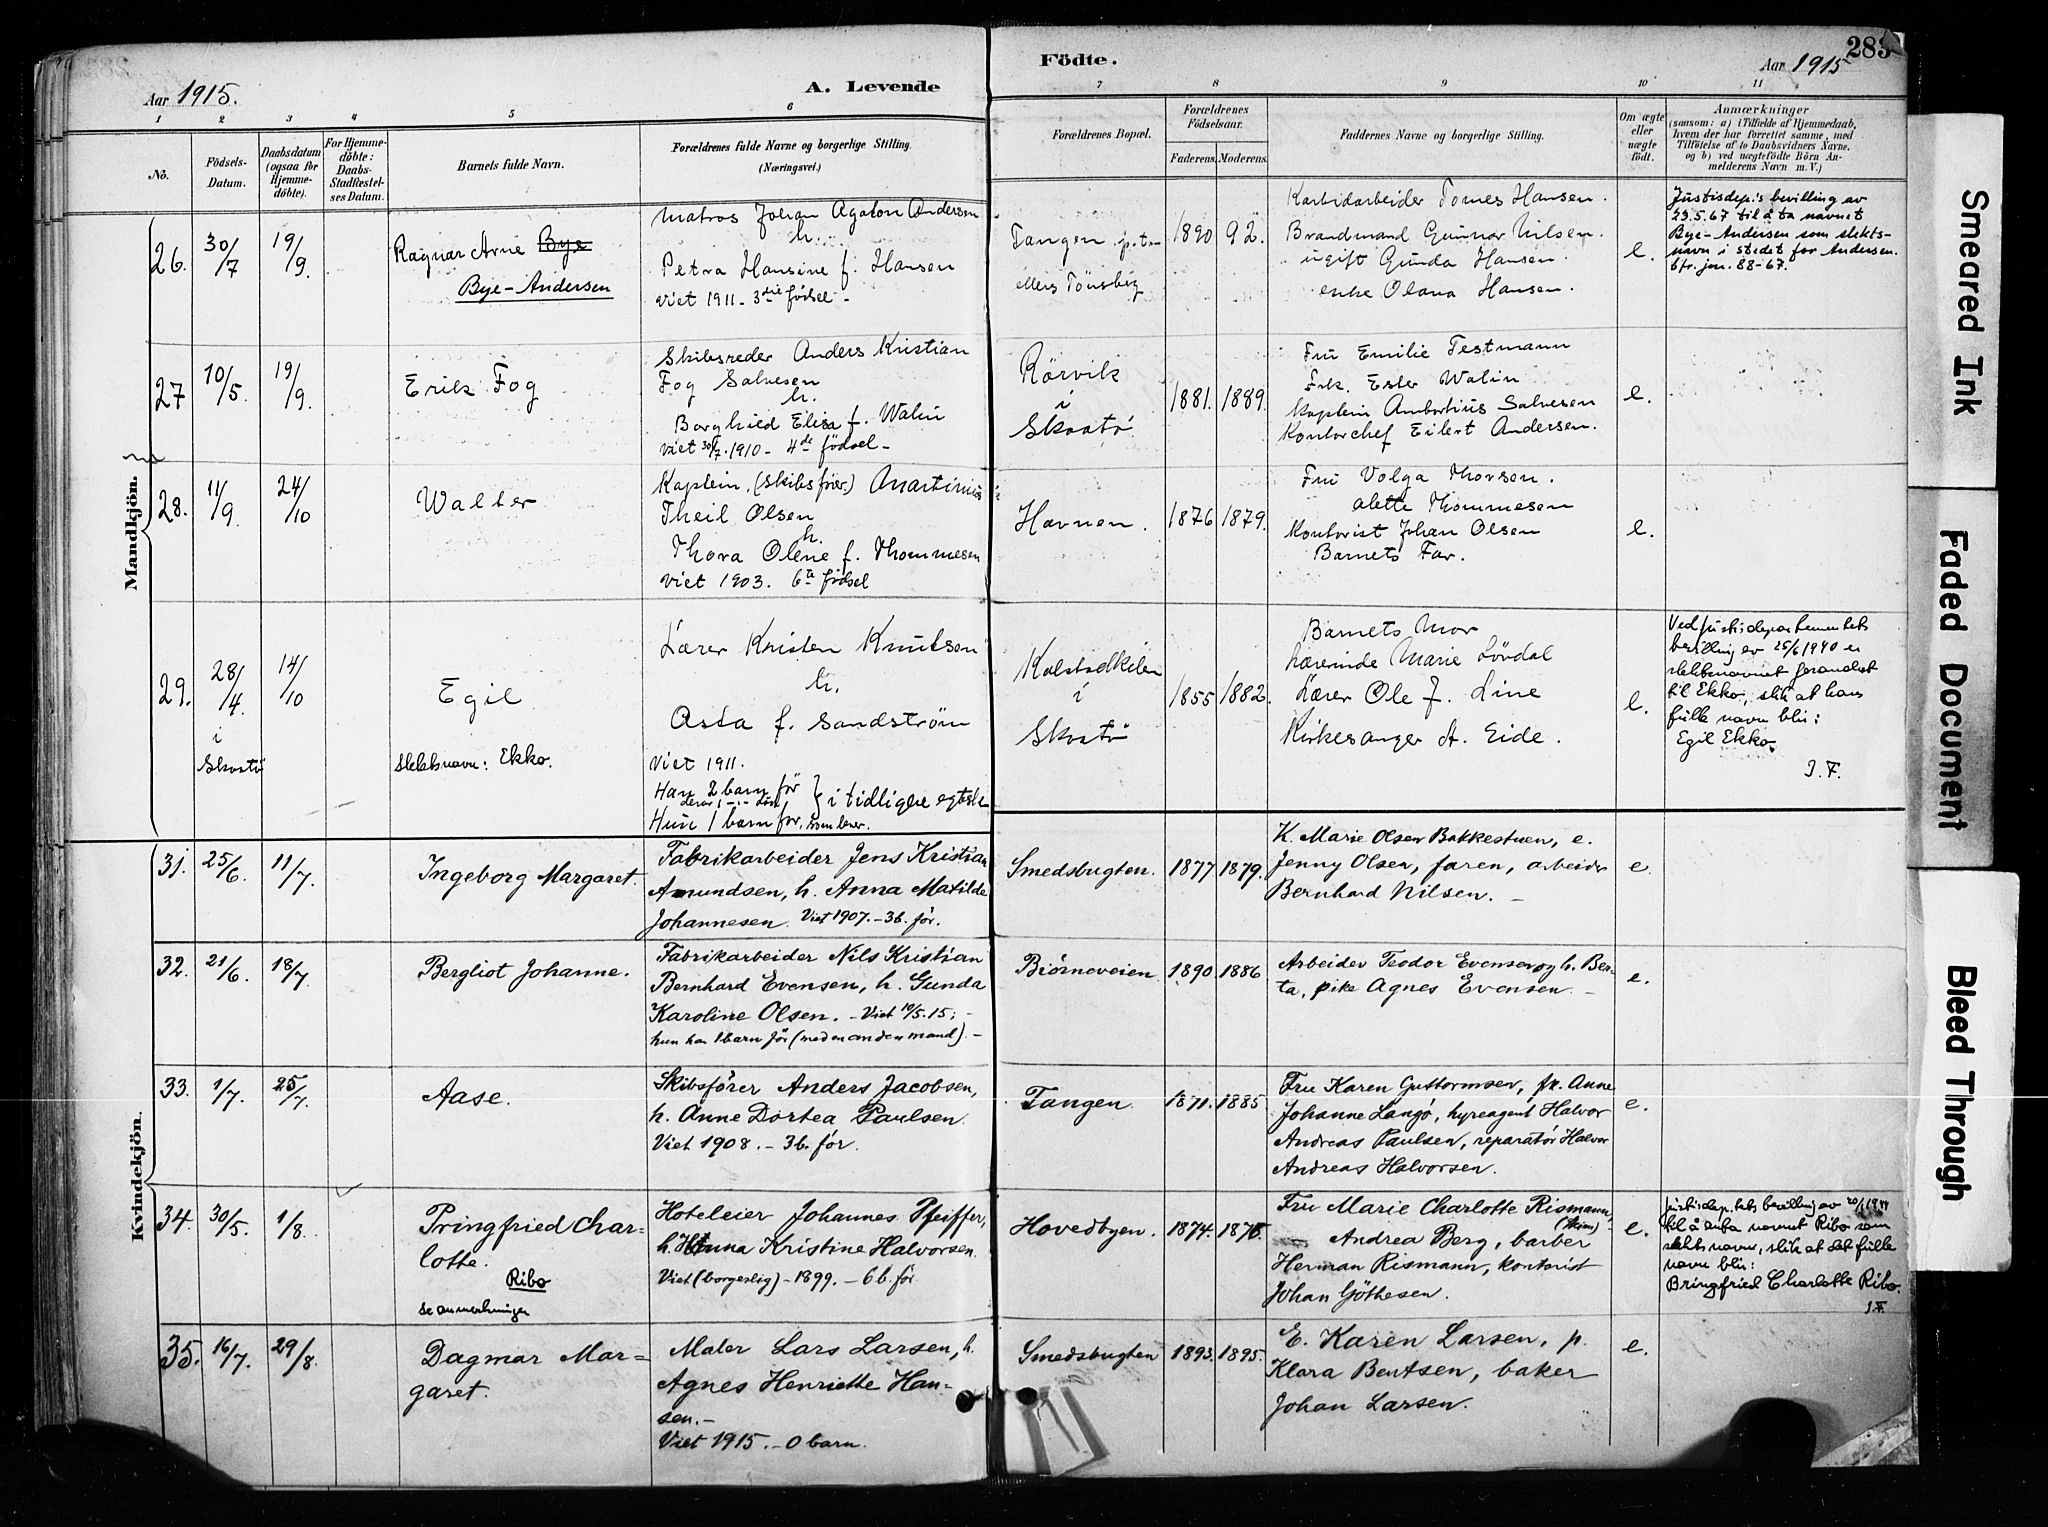 283
Aar 1915.
A. Levende
Födte.
Aar 1915
1 2 3 4 5 6 7 8 9 10 11
No.
Födsels-
Datum.
Daabsdatum
(ogsaa for
Hjemme-
döbte).
For Hjemme-
döbte:
Daabs-
Stadfæstel-
ses Datum.
Barnets fulde Navn.
Forældrenes fulde Navne og borgerlige Stilling.
(Næringsvei.)
Forældrenes Bopæl.
Forældrenes
Födselsaar.
Faderens. Moderens.
Faddernes Navne og borgerlige Stilling.
Om ægte
eller
uægte
födt.
Anmærkninger
(saasom: a) i Tilfælde af Hjemmedaab,
hvem der har forrettet samme, med
Tilföielse af to Daabsvidners Navne.
og b) ved uægtefödte Börn An-
melderens Navn m. V.)
Mandkjön.
26.
30/7
19/9.
Ragnar Arne Bye
Bye-Andersen
Matros Johan Agaton Andersen
h.
Petra Hansine f. Hansen
Viet 1911 - 3die födsel -
Tangen p. t.
Tönsberg
1890
92.
Karbidarbeider Tomes Hansen.
Brandmand Gunnar Nilsen.
ugift Gunda Hansen.
enke Olava Hansen.
e.
Justisdep.'s bevilling av
23.5.67 til å ta navnet
Bye-Andersen som slekts-
navn i stedet for Andersen.
Cfr. jnr. 88-67.
27
10/5.
19/9.
Erik Fog
Skibsreder Anders Kristian
Fog Salvesen
h.
Borghild Elisa f. Walin
viet 30/7. 1910 - 4de födsel -
Rörvik
i
Skaatö
1881.
1889.
Fru Emilie Testmann
Frk. Ester Walin
Kaptein Ambortius Salvesen
Kontorchef Eilert Andersen.
e.
28.
11/9.
24/10
Walter
Kaptein. (Skibsfører) Martinius
Theil Olsen
h.
Thora Olene f. Thommesen
Viet 1903. 6te födsel
Havnen.
1876
1879.
Fru Volga Thorsen.
Alette Thommesen
Kontorist Johan Olsen
Barnets Far.
e.
29.
28/4.
i
Skaatö
14/10
Egil
slektsnavn: Ekko.
Lærer Kristen Knutsen
h.
Asta f. Sandström
Viet 1911.
Han 2 barn før
derav 1 död
i tidligere egtesk.
Hun 1 barn før, som lever.
Kalstadkilen
i
Skaatö
1855
1882.
Barnets Mor
Lærerinde Marie Lövdal
Lærer Ole J. Line
Kirkesanger A. Eide.
e.
Ved justisdepartementets
bevilling av 25/6 1940 er
slektsnavnet forandret
til Ekko, slik at hans
fulle navn blir:
Egil Ekko.
J. F.
Kvindekjön.
31.
25/6.
11/7.
Ingeborg Margaret.
Fabrikarbeider Jens Kristian
Amundsen, h. Anna Matilde
Johannesen. Viet 1907. - 3 b. før.
Smedsbugten.
1877
1879.
K. Marie Olsen Bakkestuen, e.
Jenny Olsen, faren, arbeider
Bernhard Nilsen. -
e.
32.
21/6.
18/7
Bergliot Johanne.
Fabrikarbeider Nils Kristian
Bernhard Evensen, h. Gunda
Karoline Olsen. - Viet 10/5. 15; -
hun har 1 barn før (med en anden mand). -
Biörneveien
1890.
1886
Arbeider Teodor Evensen og h. Ber-
ta, pike Agnes Evensen. -
e.
33.
1/7.
25/7.
Aase.
Skibsfører Anders Jacobsen,
h. Anne Dortea Paulsen.
Viet 1908. - 3 b. før.
Tangen.
1871.
1885
Fru Karen Guttormsen, fr. Anne
Johanne Langö, hyreagent Halvor
Andreas Paulsen, reparatör Halvor
Andreas Halvorsen.
e.
34.
30/5.
1/8.
Pringfried Char-
lotte.
Ribo
se anmerkninger
Hoteleier Johannes Pfeiffer,
h. Anna Kristine Halvorsen.
Viet (borgerlig) - 1899. - 6 b. før
Hovedbyen.
1874.
1876.
Fru Marie Charlotte Rismann,
Andrea Berg, barber
Herman Rismann, kontorist
Johan Göthesen.
e.
Justisdep.tets bevilling av 20/1 1944
til å anta navnet Ribo som
slektsnavn, slik at det fulle
navn blir:
Bringfried Charlotte Ribo.
J. F.
35.
16/7.
29/8.
Dagmar Mar-
garet.
Maler Lars Larsen, h.
Agnes Henriette Han-
sen. -
Viet 1915. - 0 barn.
Smedsbugten
1893.
1895.
E. Karen Larsen, p.
Klara Bentsen, baker
Johan Larsen.
e.
Smeared Ink
Faded Document
Bleed Through